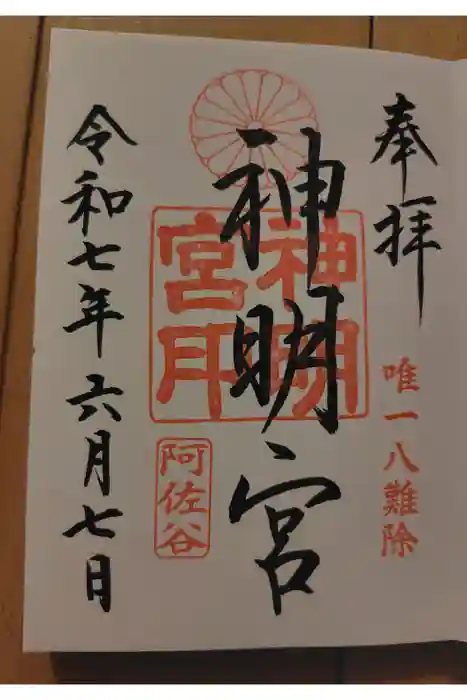 奉拝
唯一八難除
神明宮
神明
宮印
阿佐谷
令和七年六月七日